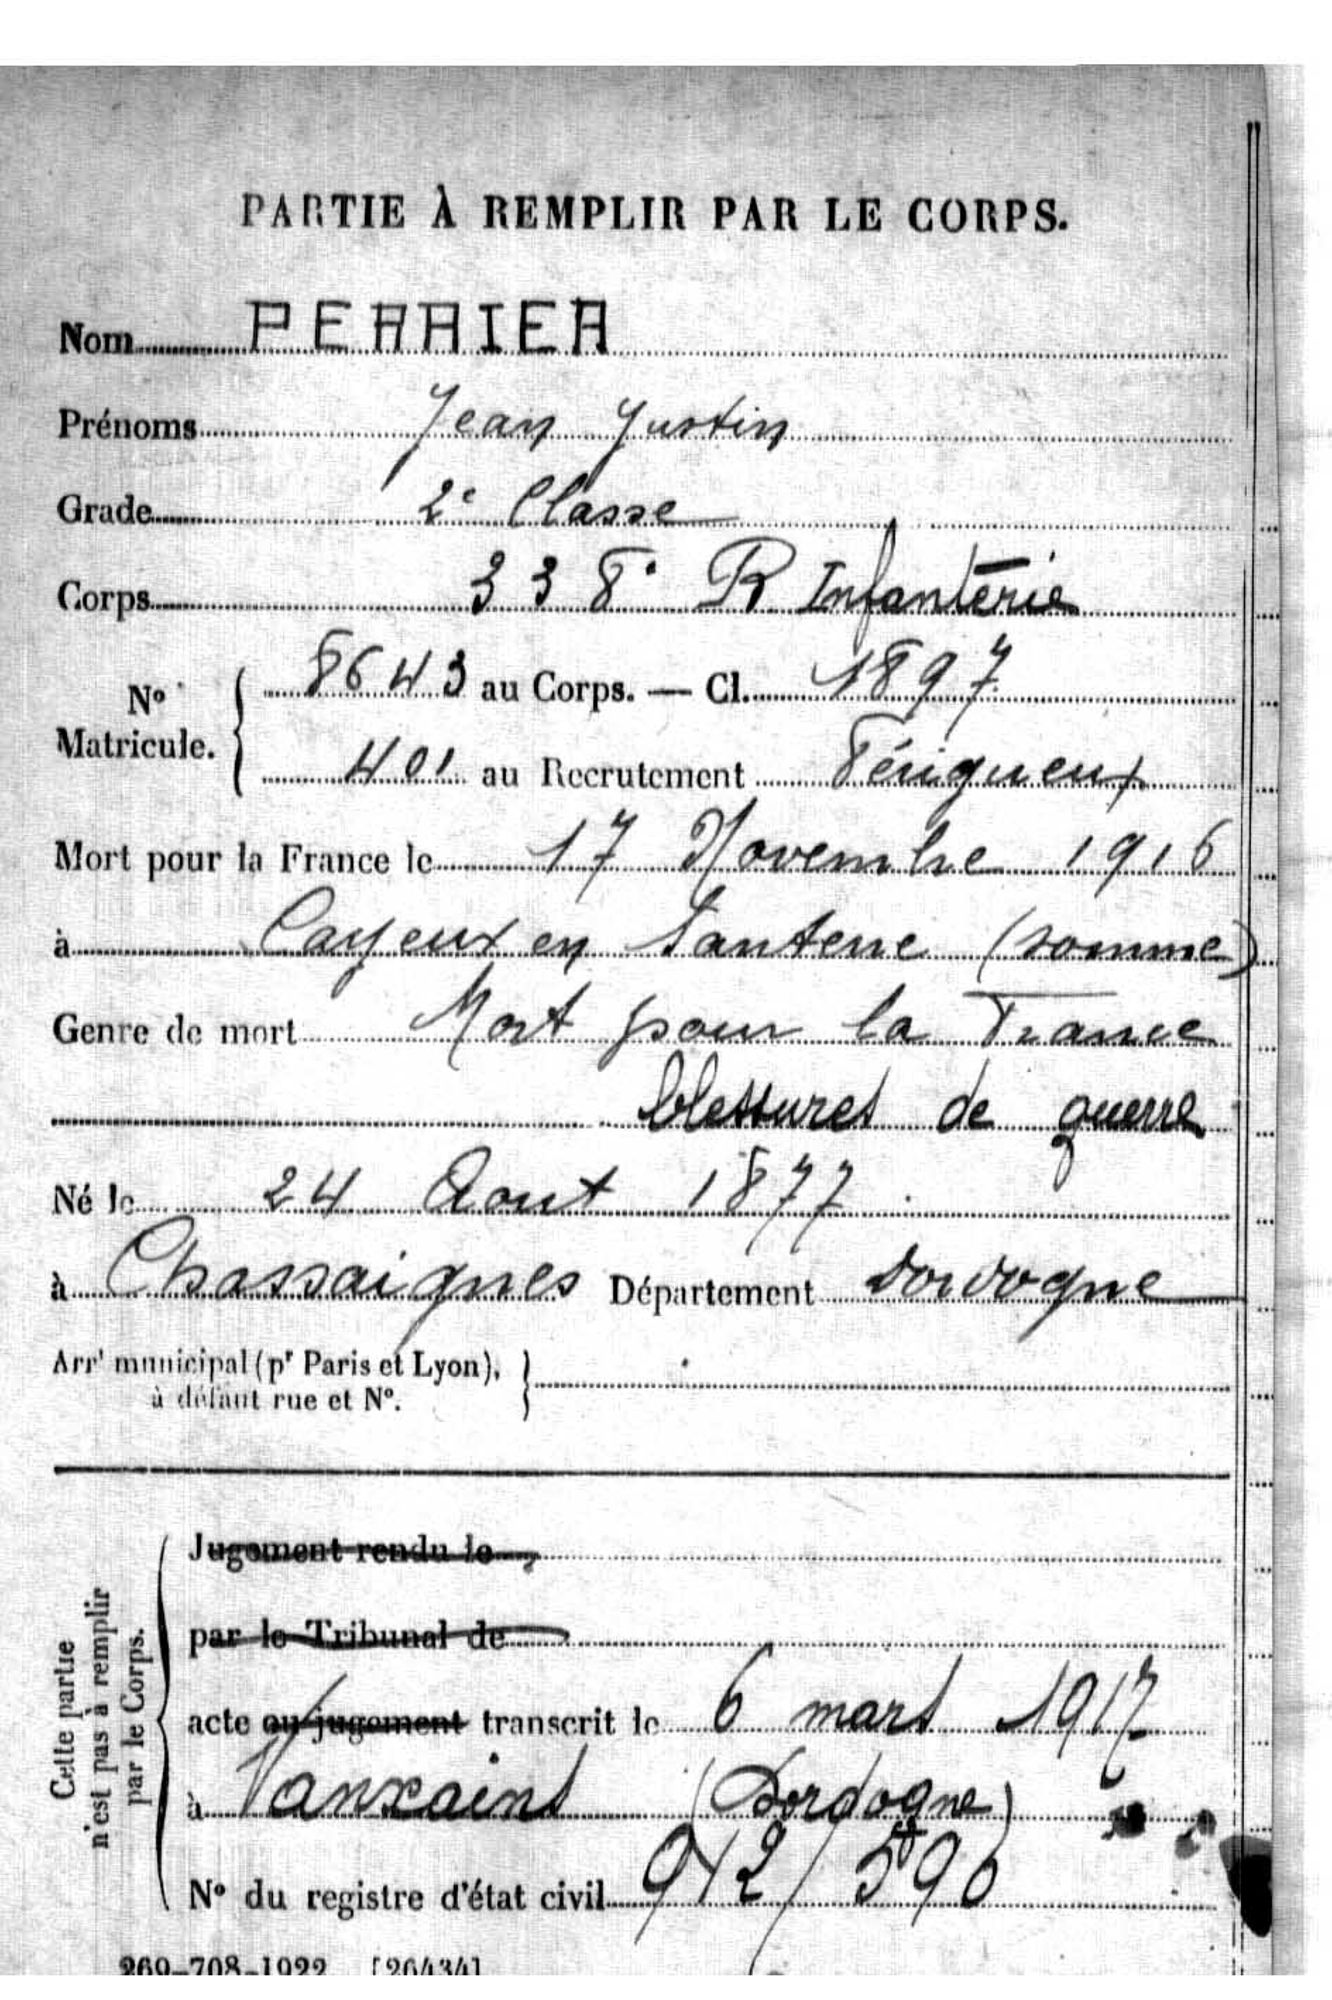 PARTIE À REMPLIR PAR LE CORPS.
Nom PERRIER
Prénoms Jean Justin
Grade 2e Classe
Corps 338e R Infanterie
No Matricule. { 8643 au Corps. — Cl. 1897
401 au Recrutement Périgueux
Mort pour la France le 17 Novembre 1916
à Cayeux en Santerre (Somme)
Genre de mort Mort pour la France
blessures de guerre
Né le 24 Aout 1877
à Chassaignes Département Dordogne
Arrt municipal (pr Paris et Lyon),
à défaut rue et No.
Cette partie
n'est pas à remplir
par le Corps.
Jugement rendu le
par le Tribunal de
acte ou jugement transcrit le 6 mars 1917
à Vanxains (Dordogne)
No du registre d'état civil 942/596
269-708-1922 [26434]